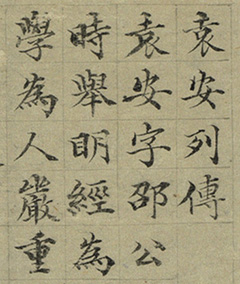 袁安列傳
袁安字邵公
時舉明經為
學為人嚴重